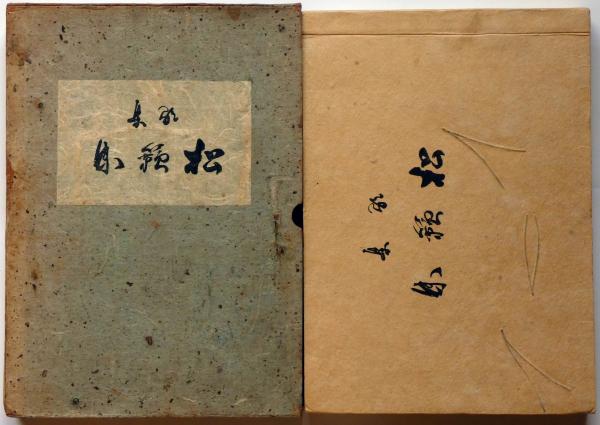 歌集
松籟
松籟
歌集